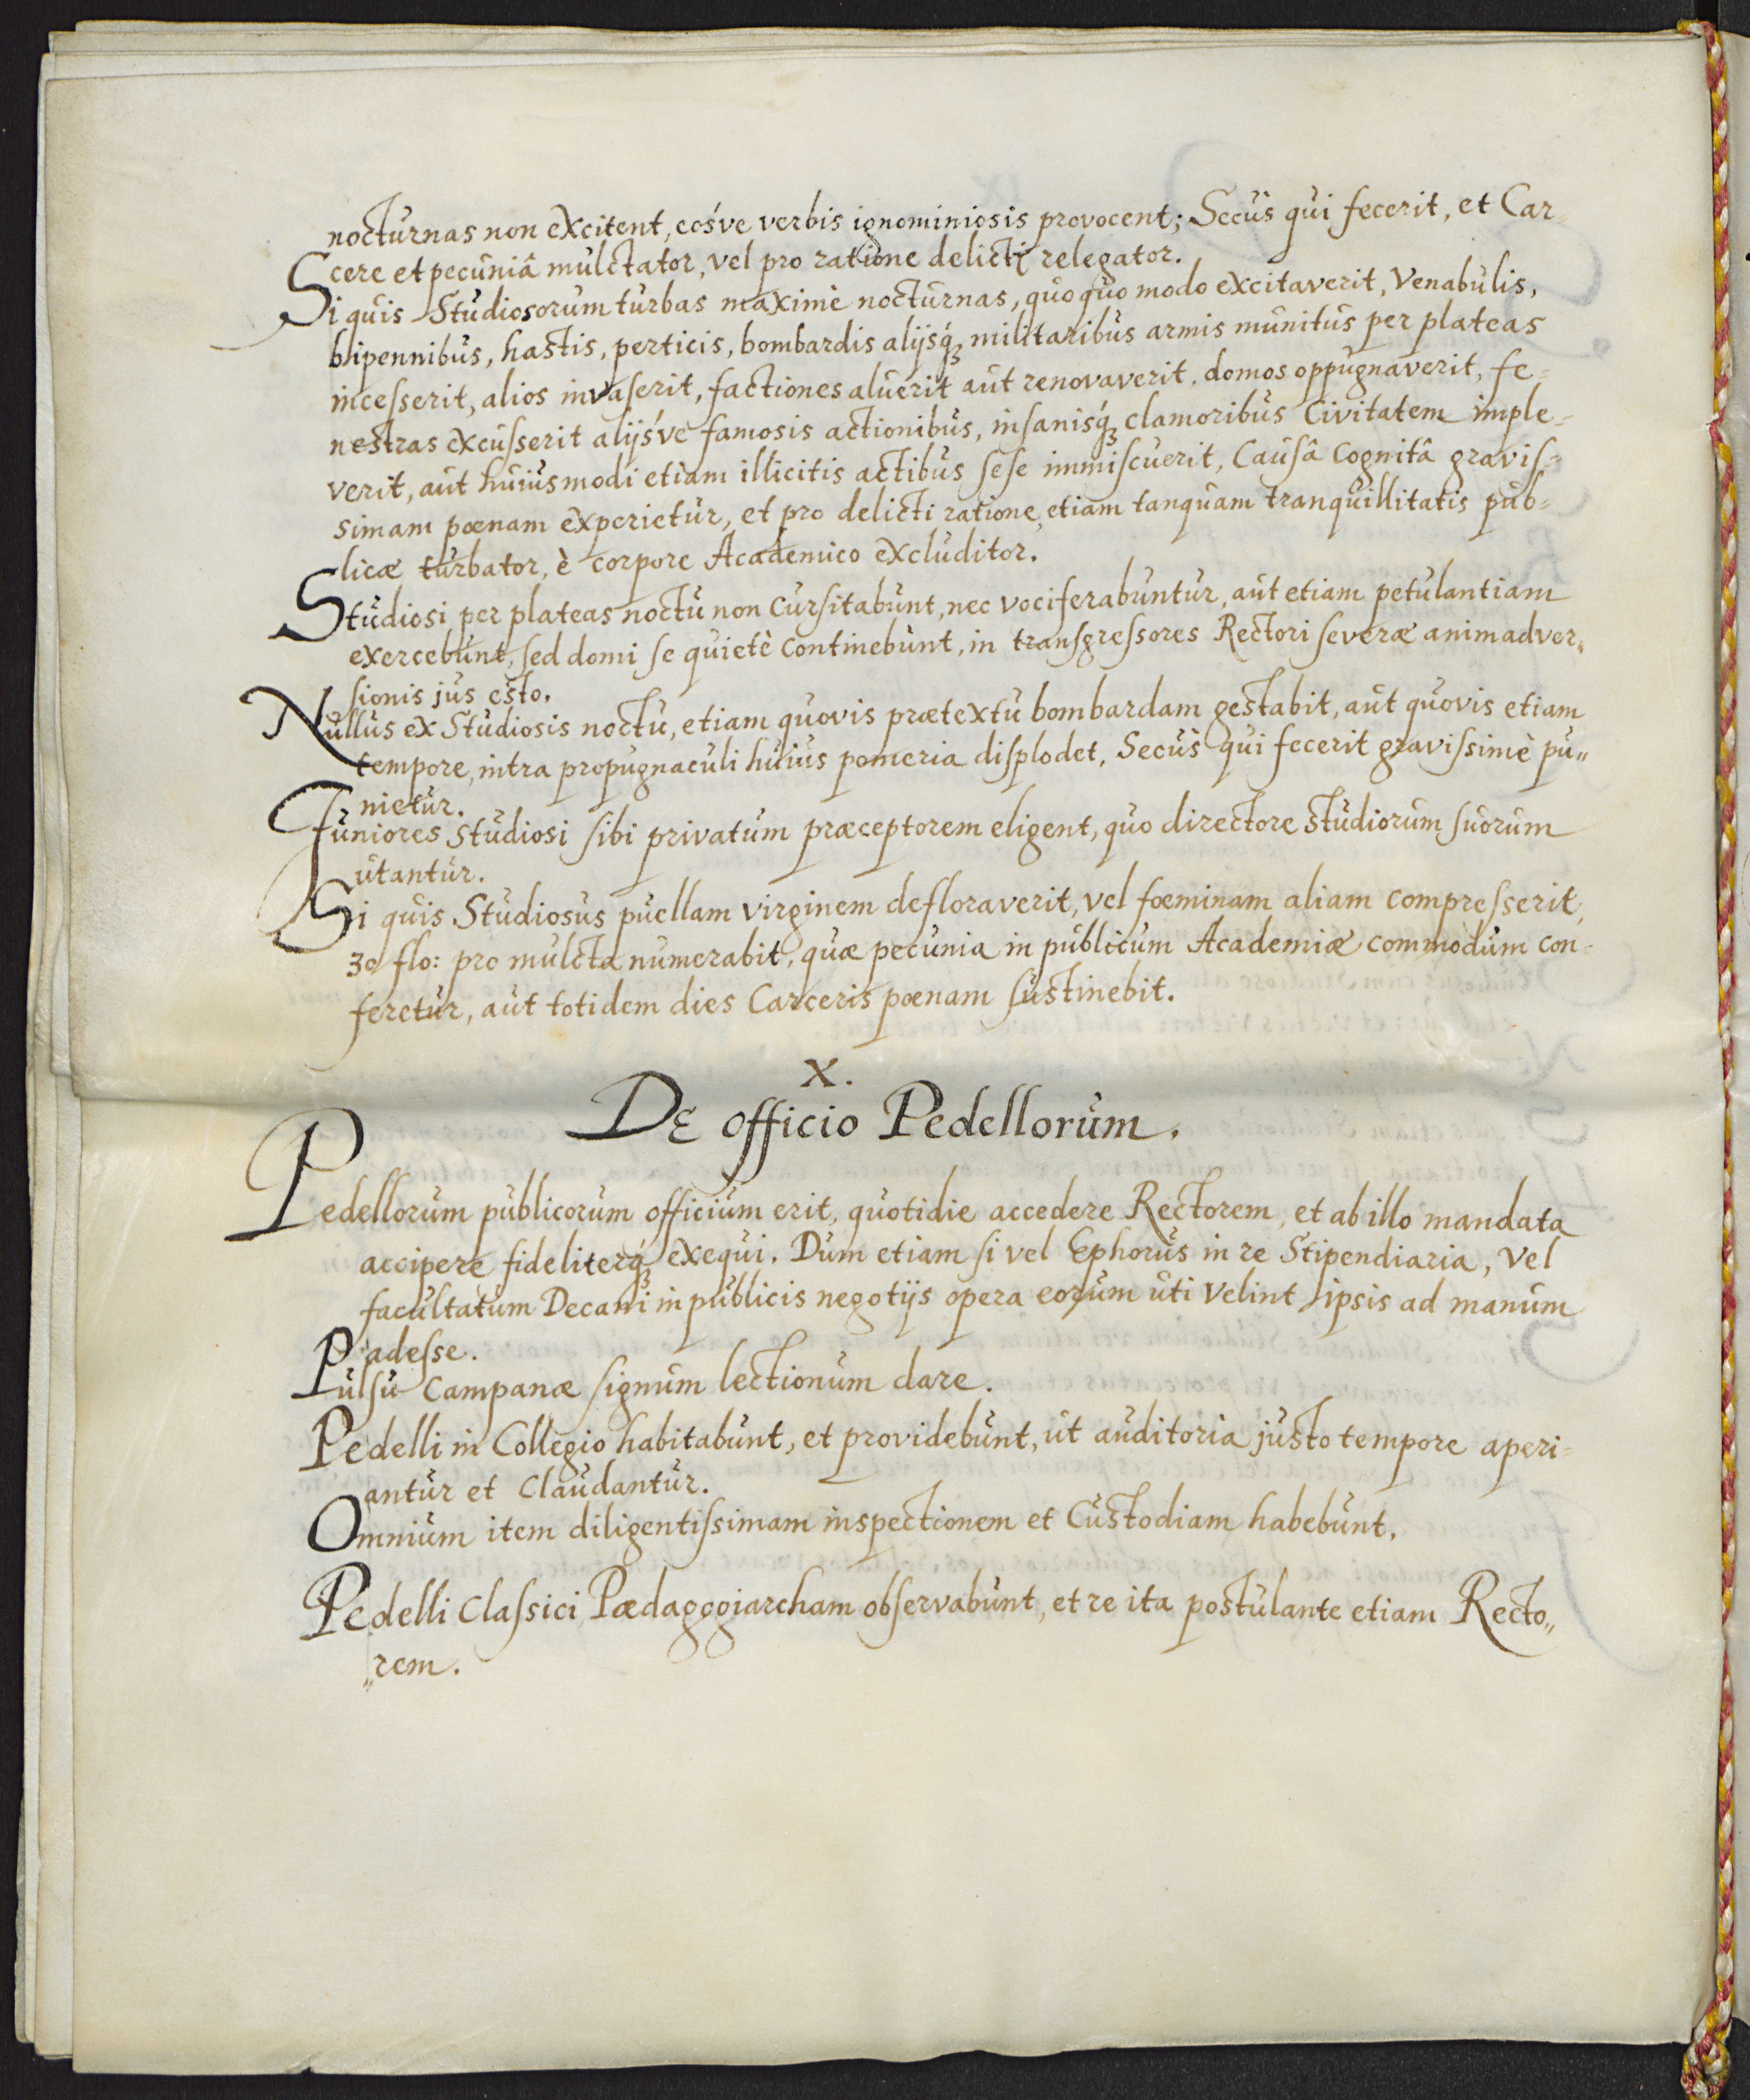 nocturnas non excitent, eosve verbis ignominiosis provocent; Secus qui fecerit, et Car=
cere et pecuniâ mulctator, vel pro ratione delicti relegator.
Si quis Studiosorum turbas maximè nocturnas, quoquo modo excitaverit, Venabulis,
bipennibus, hastis, perticis, bombardis alijsq́ꝫ militaribus armis munitus per plateas
incesserit, alios invaserit, factiones aluerit aut renovaverit, domos oppugnaverit, fe=
nestras excusserit alijsve famosis actionibus, insanisq́ꝫ clamoribus Civitatem imple=
verit, aut huiusmodi etiam illicitis actibus sese immiscuerit, Causâ Cognitâ gravis=
simam pœnam experietur, et pro delicti ratione, etiam tanquam tranquillitatis pub=
licæ turbator, è corpore Academico excluditor.
Studiosi per plateas noctu non Cursitabunt, nec vociferabuntur, aut etiam petulantiam
exercebunt, sed domi se quietè Continebunt, in transgressores Rectori severæ animadver„
sionis jus esto.
Nullus ex Studiosis noctu, etiam quovis prætextu bombardam gestabit, aut quovis etiam
tempore, intra propugnaculi huius pomeria displodet, Secus qui fecerit gravissimè pu„
nietur.
Juniores Studiosi sibi privatum præceptorem eligent, quo directore Studiorum suorum
utantur.
Si quis Studiosus puellam virginem defloraverit, vel fœminam aliam compresserit,
30 flo: pro mulcta numerabit, quæ pecunia in publicum Academiæ commodum con=
feretur, aut totidem dies Carceris pœnam sustinebit.
X.
De officio Pedellorum.
Pedellorum publicorum officium erit, quotidie accedere Rectorem, et ab illo mandata
accipere fideliterq́ꝫ exequi. Dum etiam si vel Ephorus in re Stipendiaria, vel
facultatum Decani in publicis negotijs opera eorum uti Velint ipsis ad manum
adesse.
Pulsu Campanæ signum lectionum dare.
Pedelli in Collegio habitabunt, et providebunt, ut auditoria justo tempore aperi=
antur et Claudantur.
Omnium item diligentissimam inspectionem et Custodiam habebunt.
Pedelli Classici Pædagogiarcham observabunt, et re ita postulante etiam Recto„
„rem.